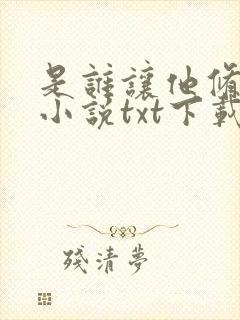 是誰讓他修
小說txt下載
殘清夢